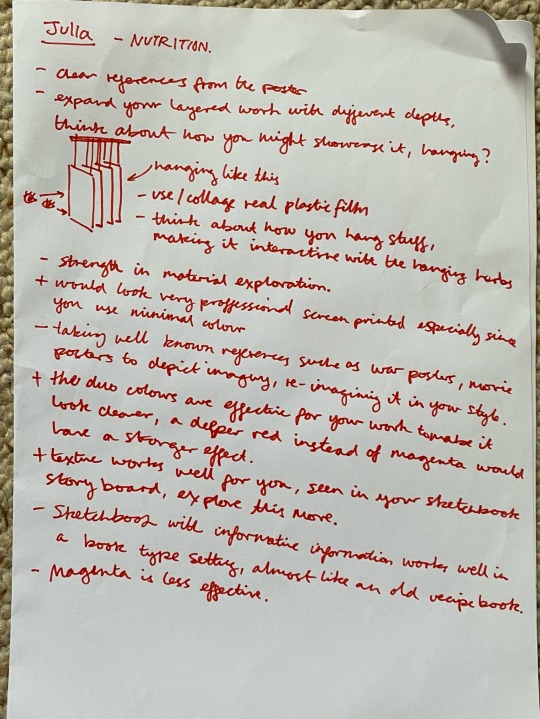 Julia - NUTRITION.
- clear references from the poster
- expand your layered work with different depths,
think about how you might showcase it, hanging?
hanging like this
- use/collage real plastic film
- think about how you hang stuff,
making it interactive with the hanging herbs
- strength in material exploration.
+ would look very proffessional screen printed especially since
you use minimal colour
- taking well known references such as war posters, movie
posters to depict imagery, re-imagining it in your style.
+ the duo colours are effective for your work to make it
look cleaner, a deeper red instead of magenta would
have a stronger effect.
+ texture works well for you, seen in your sketchbook
story board, explore this more.
- Sketchbook with informative information works well in
a book type setting, almost like an old recipe book.
- Magenta is less effective.